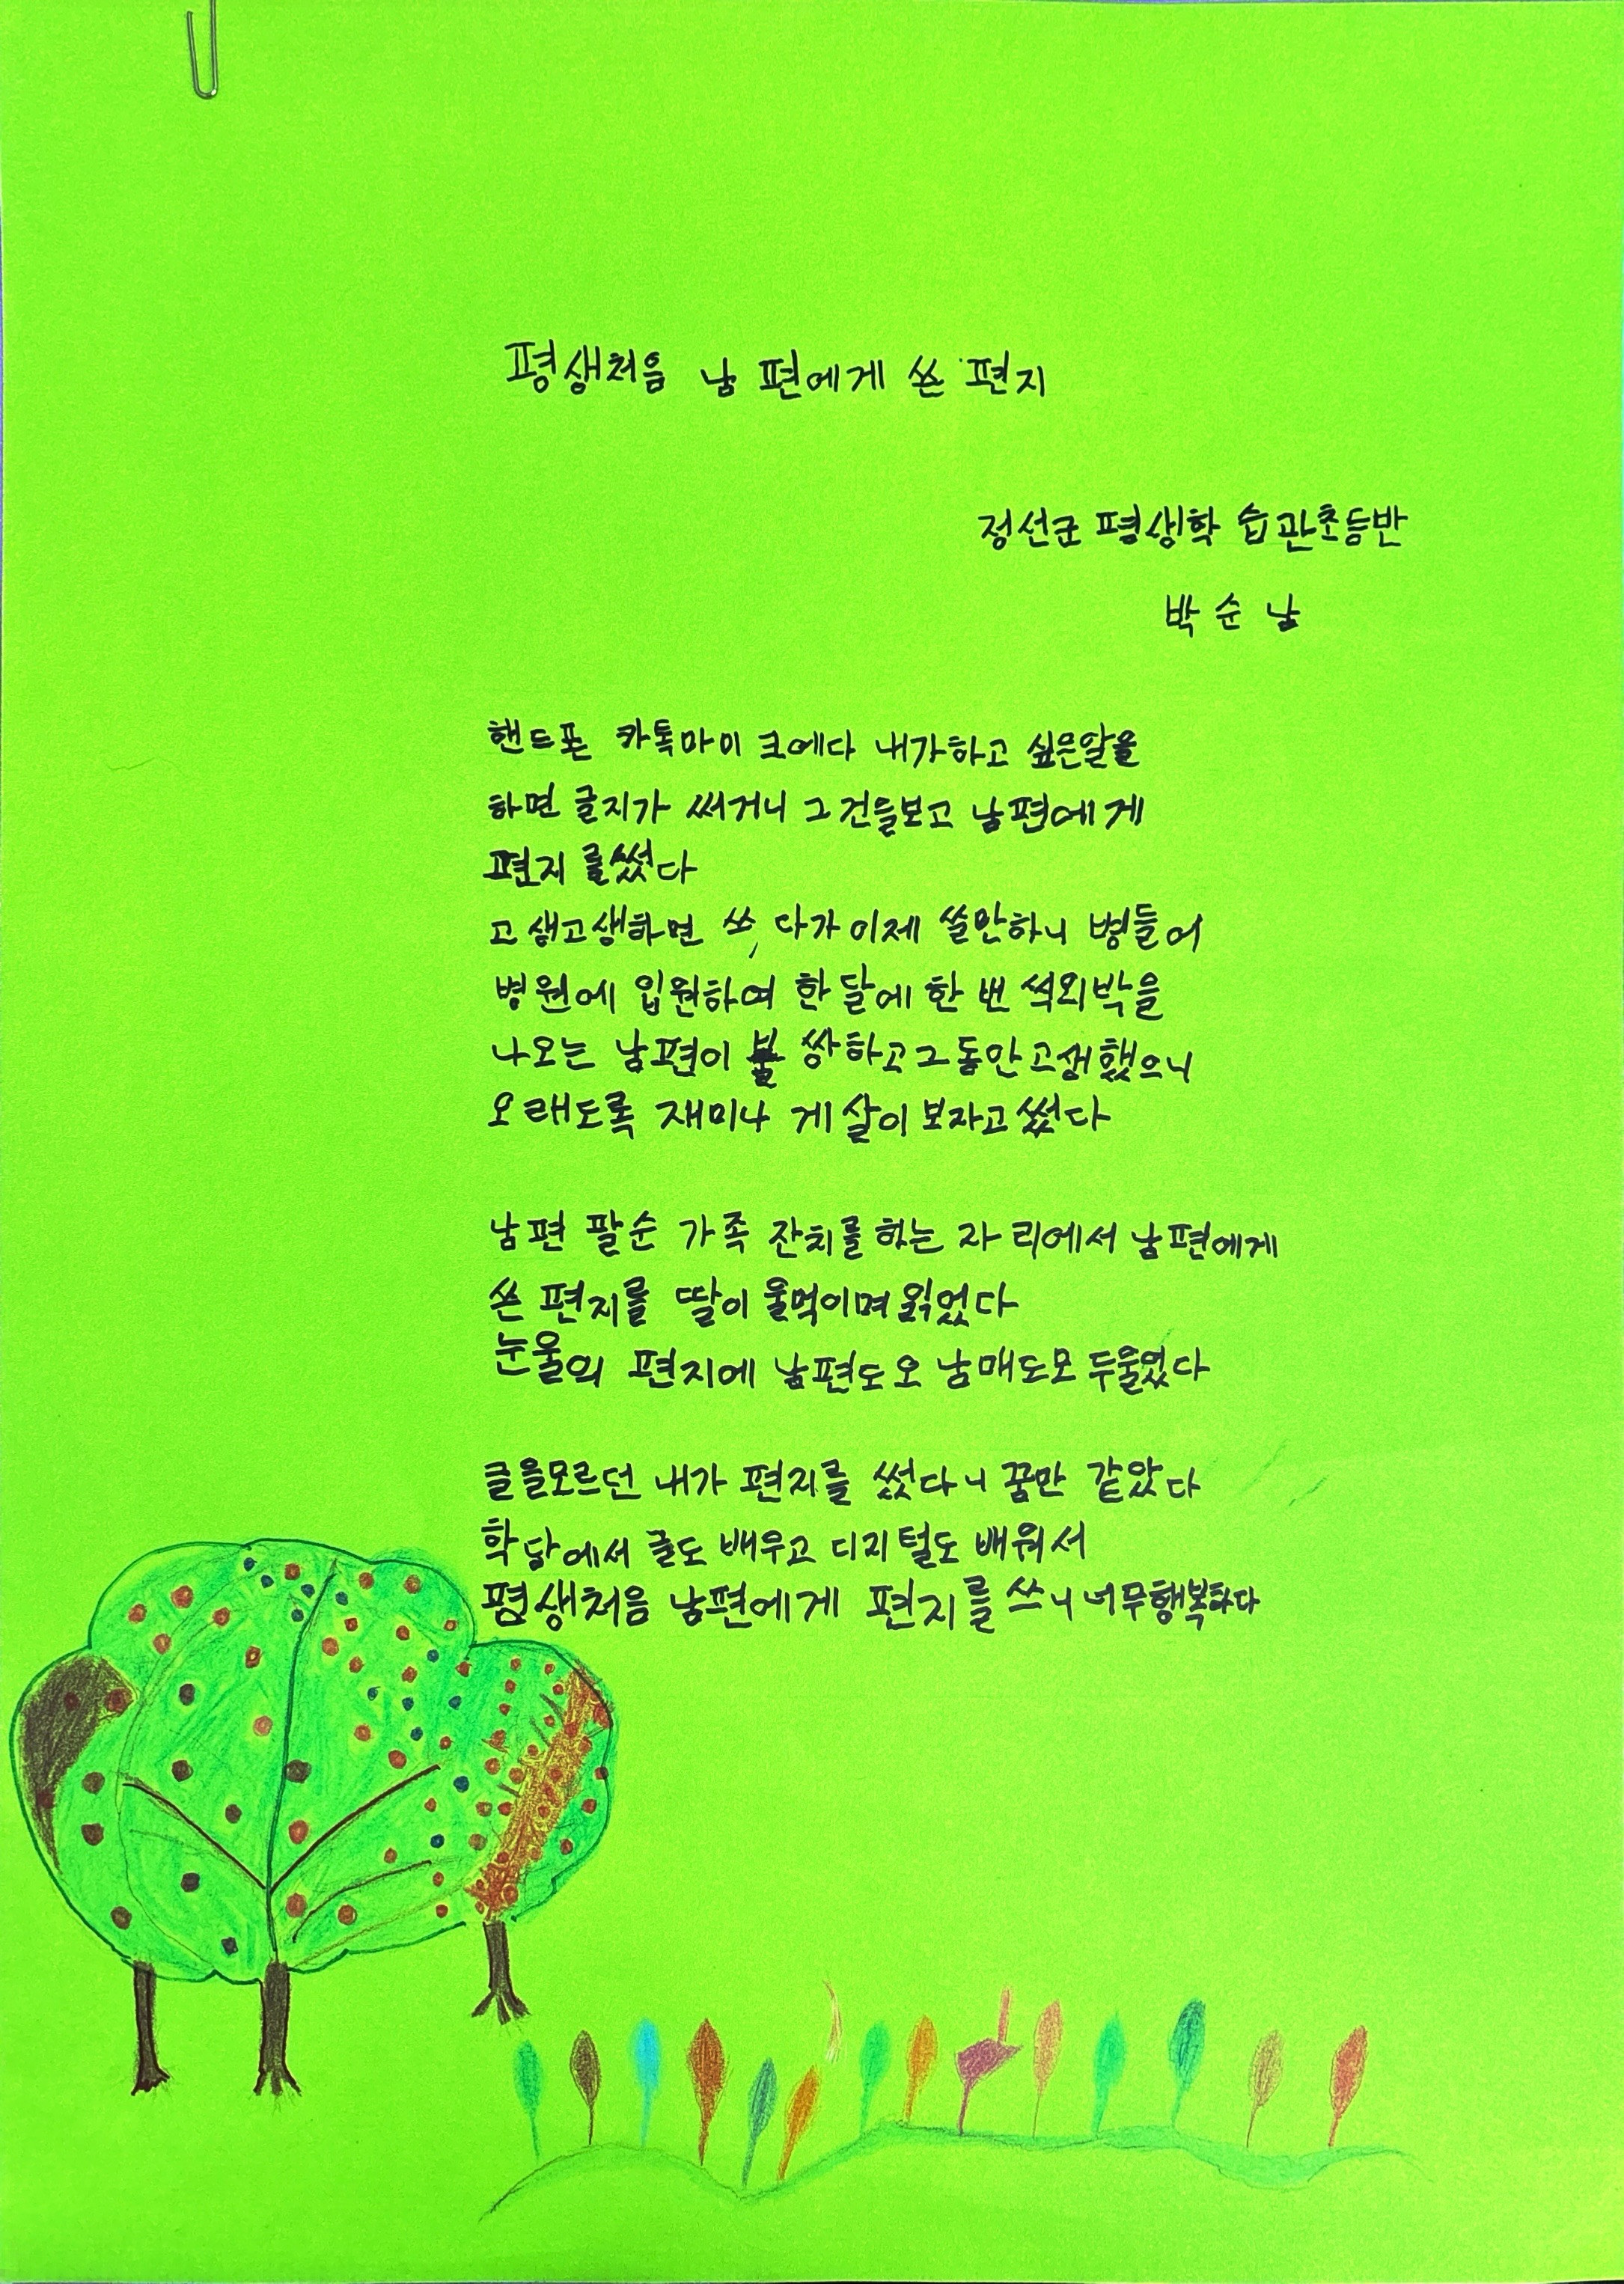 평생처음 남편에게 쓴 편지
정선군 평생학 습관초등반
박 순 남
핸드폰 카톡마이 크에다 내가하고 싶은말을
하면 글지가 써거니 그건들보고 남편에게
편지 를썼다
고생고생하면 쓰, 다가이제 쓸만하니 병들어
병원에 입원하여 한달에 한 번 씩외박을
나오는 남편이 불 쌍하고그동안고생했으니
오래도록 재미나 게살이 보자고썼다
남편 팔순 가족 잔치를하는 자 리에서 남편에게
쓴 편지를 딸이 울먹이며읽었다
눈물의 편지에 남편도오 남매도모 두울었다
글을모르던 내가 편지를 썼다니 꿈만 같았다
학당에서 글도 배우고 디지털도 배워서
평생처음 남편에게 편지를 쓰니너무행복하다